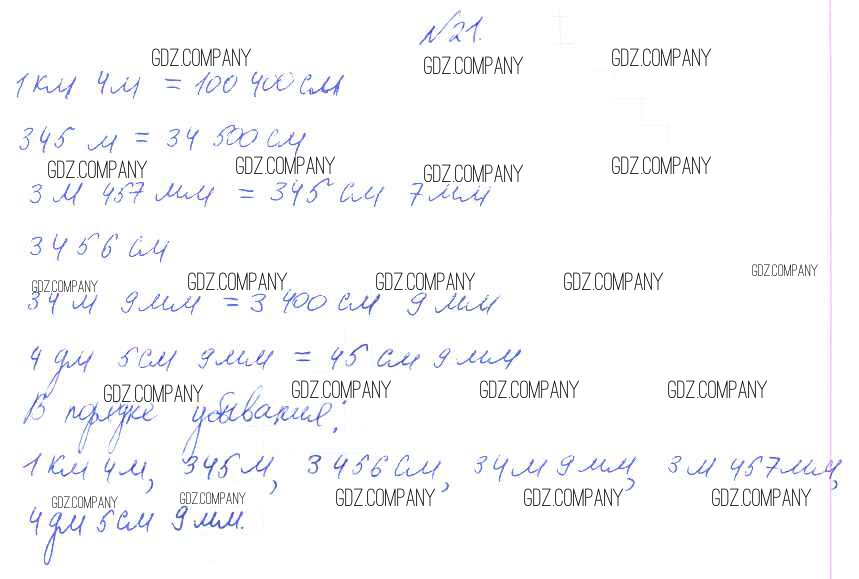 №21.
GDZ.COMPANY GDZ.COMPANY GDZ.COMPANY
1 км 4 м = 100 400 см
345 м = 34 500 см
GDZ.COMPANY GDZ.COMPANY GDZ.COMPANY GDZ.COMPANY
3 м 457 мм = 345 см 7 мм
3 456 см
GDZ.COMPANY GDZ.COMPANY GDZ.COMPANY GDZ.COMPANY GDZ.COMPANY
34 м 9 мм = 3 400 см 9 мм
4 дм 5 см 9 мм = 45 см 9 мм
GDZ.COMPANY GDZ.COMPANY GDZ.COMPANY GDZ.COMPANY
В порядке убывания:
1 км 4 м, 345 м, 3 456 см, 34 м 9 мм, 3 м 457 мм,
GDZ.COMPANY GDZ.COMPANY GDZ.COMPANY GDZ.COMPANY GDZ.COMPANY
4 дм 5 см 9 мм.